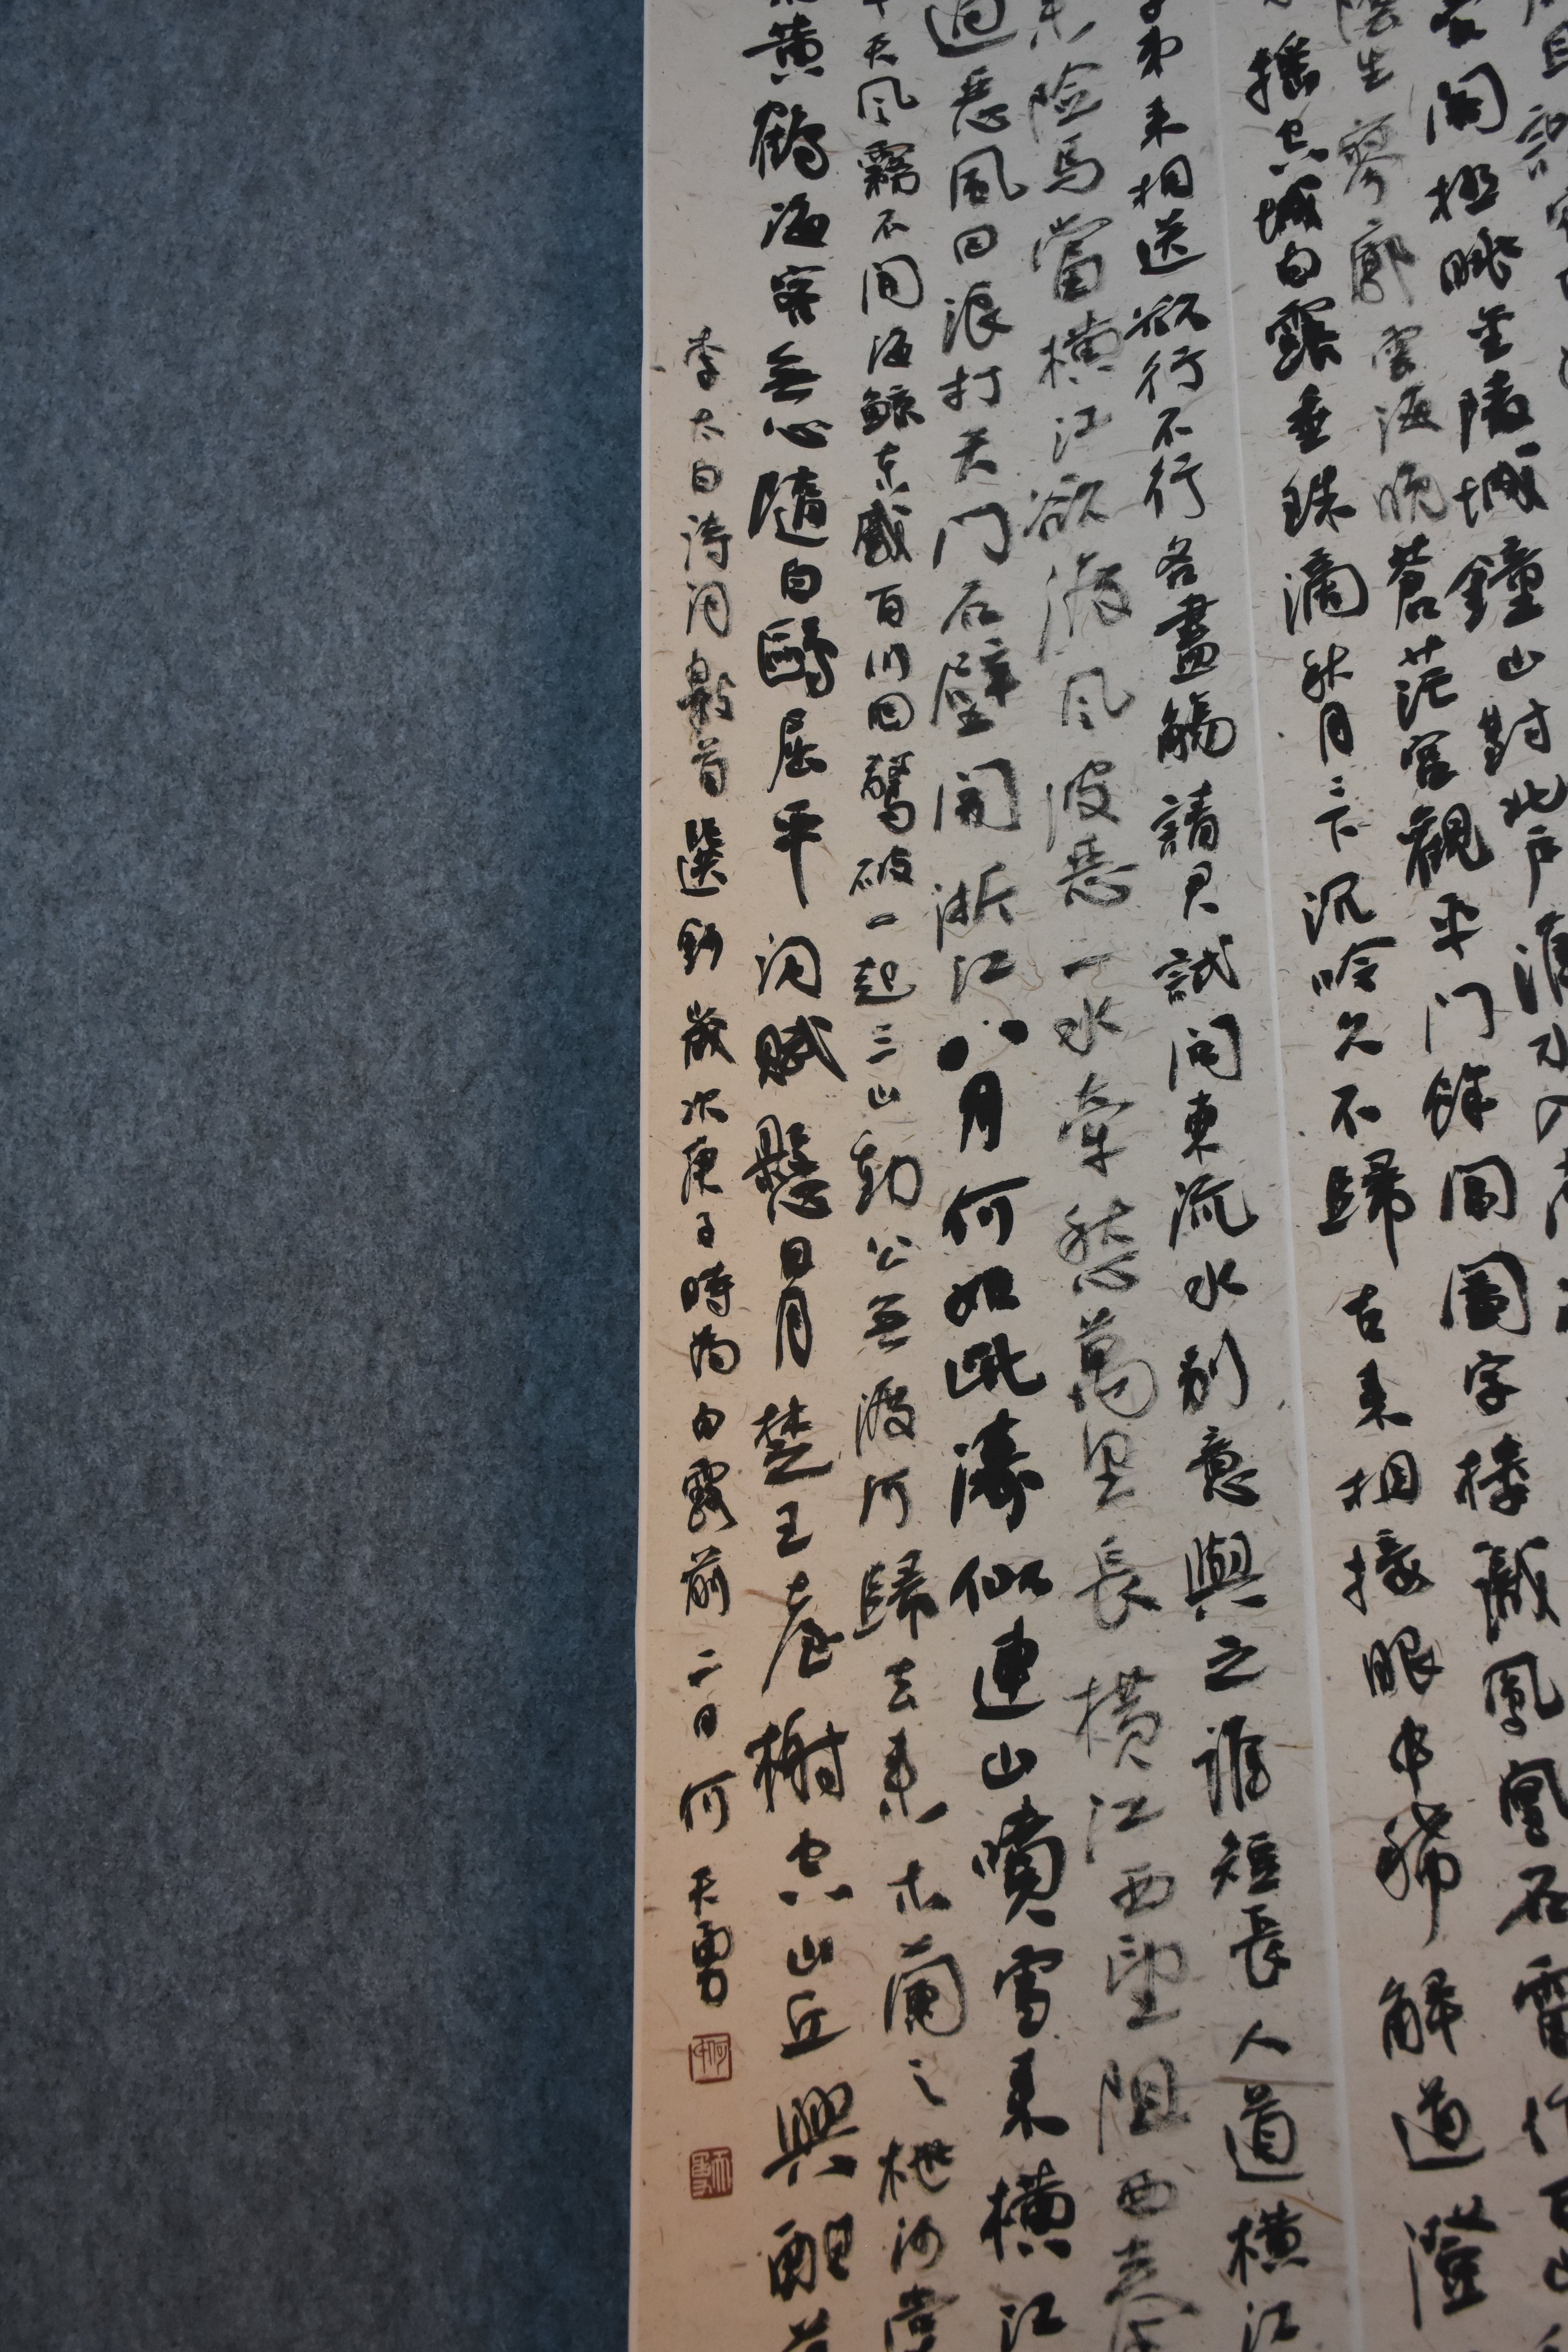 閣極眺金陵城鐘山對北戶淮水入
陰生寥廓雲海晚蒼茫宮觀平門餘閶闔字樓識鳳凰名雷作百山
搖空城白露垂珠滴秋月〻下沉吟久不歸古來相接眼中稀解道澄
弟來相送欲行不行各盡觴請君試問東流水別意與之誰短長人道橫江
來險馬當橫江欲渡風波惡一水牽愁萬里長橫江西望阻西秦
過惡風回浪打天门石壁開浙江八月何如此濤似連山噴雪來橫江
天風霧不開海鯨東蹙百川回驚破一起三山動公無渡河歸去來木蘭之枻沙棠
黃鶴海客無心隨白鷗屈平詞賦懸日月楚王臺榭空山丘興酣
李太白詩詞數首選鈔歲次庚子時為白露前二日何天勇